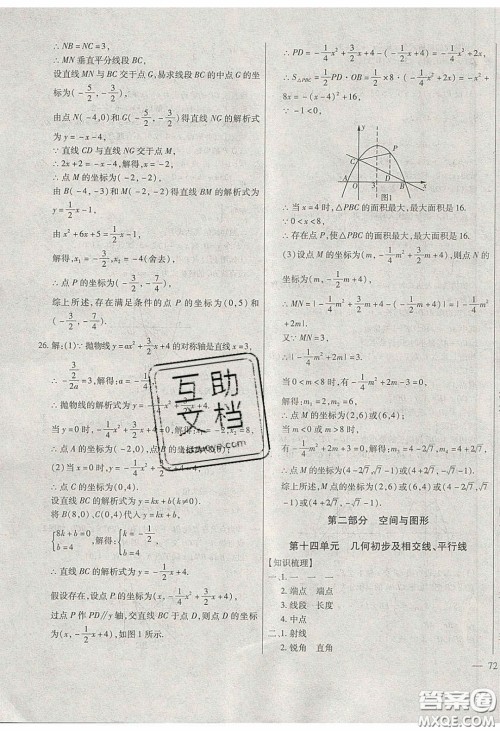 ∴ NB = NC = 3,
∴ MN 垂直平分线段 BC,
设直线 MN 与 BC 交于点 G, 易求线段 BC 的中点 G 的坐
标为(-5/2, -3/2),
由点 N(-4,0) 和 G(-5/2, -3/2) 得直线 NG 的解析式
为 y = -x-4,
∵ 直线 CD 与直线 MG 交于点 M,
∴ 2x+2 = -x-4, 解得: x = -2,
∴ 点 M 的坐标为(-2,-2),
由 B(-4,-3) 和 M(-2,-2) 得直线 BM 的解析式为
y = 1/2x-1,
由 x²+6x+5 = 1/2x-1,
解得, x₁ = -3/2, x₂ = -4(舍去),
∴ 点 P 的坐标为(-3/2, -7/4),
综上所述, 存在满足条件的点 P 的坐标为(0,5)和
(-3/2, -7/4).
26. 解:(1)∵ 抛物线 y = ax²+3/2x+4 的对称轴是直线 x = 3,
解得: a = -1/4,
∴ 抛物线的解析式为
当 y = 0 时, -1/4x²+3/2x+4 = 0,
∴ 点 A 的坐标为(-2,0), 点 B
(2)当 x = 0 时, y = -1/4x²+3/2x+4 = 4,
∴ 点 C 的坐标为(0,4).
设直线 BC 的解析式为 y = kx+b(k≠0).
将 B(8,0), C(0,4) 代入 y = kx+b,
{8k+b=0 b=4, 解得: {k=-1/2 b=4,
∴ 直线 BC 的解析式为 y = -1/2x+4.
假设存在, 设点 P 的坐标为(x, -1/4x²+3/2x+4),
过点 P 作 PD∥y 轴, 交直线 BC 于点 D, 则点 D 的坐标
为(x, -1/2x+4), 如图 1 所示.
互助
文档
∴ PD = -1/4x²+3/2x+4-(-1/2x+4) = -1/4x²+2x,
∴ S△PBC = 1/2PD·OB = 1/2×8·(-1/4x²+2x) = -x²+
8x = -(x-4)²+16,
∵ -1<0,
y
C
P
A
O
3
D
B
x
图1
∴ 当 x = 4 时, △PBC 的面积最大, 最大面积是 16.
∵ 0<x<8,
∴ 存在点 P, 使 △PBC 的面积最大, 最大面积是 16.
(3)设点 M 的坐标为(m, -1/4m²+3/2m+4), 则点 N 的
坐标为(m, -1/2m+4),
∴ MN = |-1/4m²+3/2m+4-(-1/2m+4)| = |-1/4m²
+2m|.
又∵ MN = 3, ∴ |-1/4m²+2m| = 3.
当 0<m<8 时, 有 -1/4m²+2m-3 = 0,
解得: m₁ = 2, m₂ = 6,
∴ 点 M 的坐标为(2,6)或(6,4);
当 m<0 或 m>8 时, 有 -1/4m²+2m+3 = 0,
解得: m₃ = 4-2√7, m₄ = 4+2√7,
∴ 点 M 的坐标为(4-2√7, √7-1)或(4+2√7, -√7-1).
综上所述, 点 M 的坐标为(2,6)或(6,4)或(4-2√7, √7
-1)或(4+2√7, -√7-1).
第二部分 空间与图形
第十四单元 几何初步及相交线、平行线
【知识梳理】
一、1. 一 一 一
2. 端点 端点
3. 线段 长度
4. 中点
二、1. 射线
2. 锐角 直角
— 72
答案圈
MXQE.COM